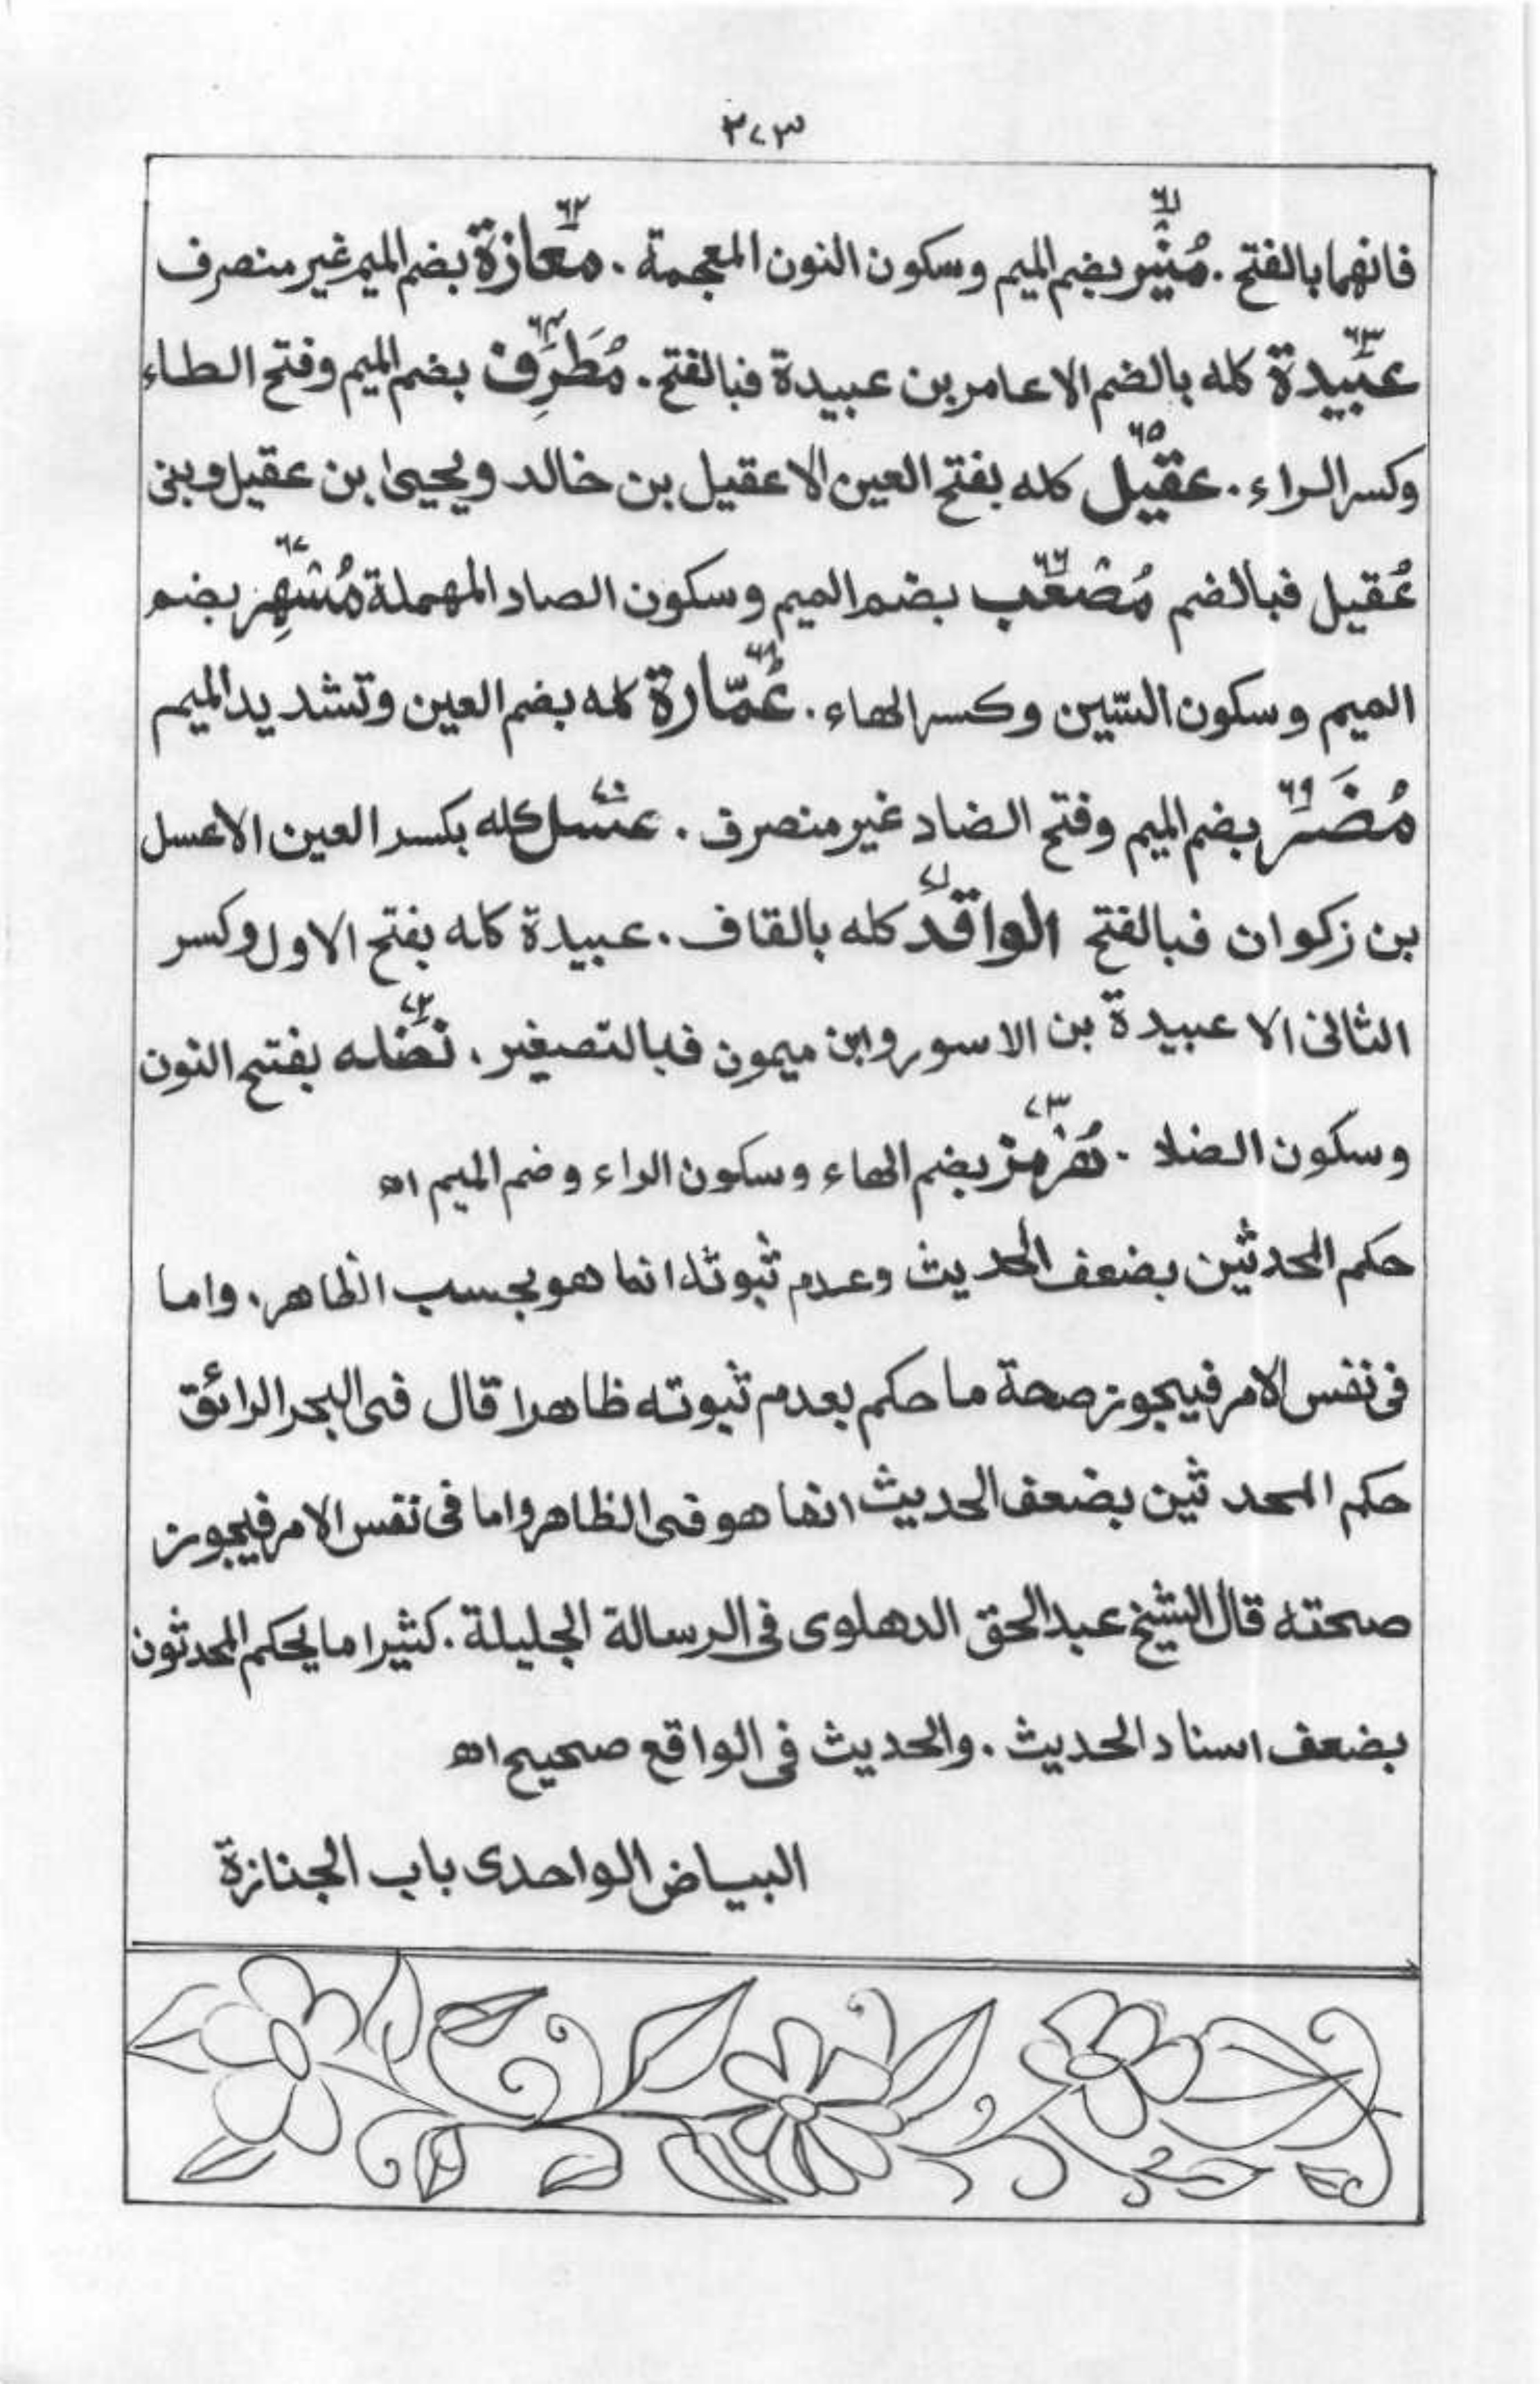 ٣٧٣
فانهما بالفتح . مُنْيَر٦١ بضم الميم وسكون النون المعجمة . معازة٦٢ بضم الميم غير منصرف
عبيدة٦٣ كله بالضم الا عامر بن عبيدة فبالفتح . مُطَرِّف٦٤ بضم الميم وفتح الطاء
وكسر الراء . عقيل٦٥ كله بفتح العين الا عقيل بن خالد ويحيىٰ بن عقيل وبنى
عُقيل فبالضم مُصْعَب٦٦ بضم الميم وسكون الصاد المهملة مُسْهِر٦٧ بضم
الميم وسكون السّين وكسر الهاء . عُمّارة٦٨ كله بضم العين وتشديد الميم
مُضَر٦٩ بضم الميم وفتح الضاد غير منصرف . عسل٧٠ كله بكسر العين الا عسل
بن زكوان فبالفتح الواقد٧١ كله بالقاف . عبيدة كله بفتح الاول وكسر
الثانى الا عبيدة بن الاسور وابن ميمون فبالتصغير . نضله٧٢ بفتح النون
وسكون الضلا . هُرْمز٧٣ بضم الهاء وسكون الراء وضم الميم اھ
حكم المحدثين بضعف الحديث وعدم ثبوته انما هو بحسب الظاهر . واما
فى نفس الامر فيجوز صحة ما حكم بعدم ثبوته ظاهرا قال فى البحر الرائق
حكم المحدثين بضعف الحديث انما هو فى الظاهر واما فى نفس الامر فيجوز
صحته قال الشيخ عبد الحق الدهلوى فى الرسالة الجليلة . كثيرا ما يحكم المحدثون
بضعف اسناد الحديث . والحديث فى الواقع صحيح اھ
البياض الواحدى باب الجنازة